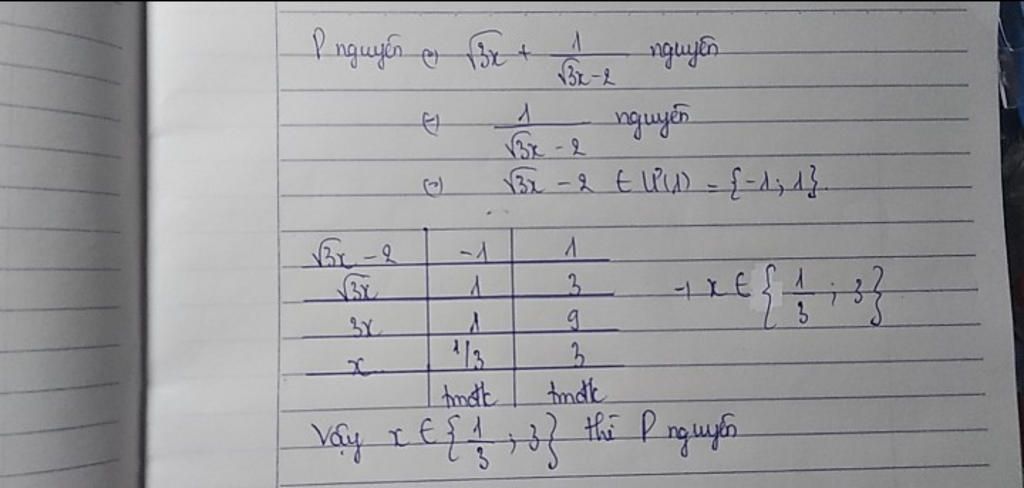 P nguyên ⇔ √3x + 1/(√3x - 2) nguyên
⇔ 1/(√3x - 2) nguyên
⇔ √3x - 2 ∈ Ư(1) = {-1; 1}.
√3x - 2 | -1 | 1
√3x | 1 | 3
3x | 1 | 9 → x ∈ {1/3; 3}
x | 1/3 | 3
tmđk | tmđk
Vậy x ∈ {1/3; 3} thì P nguyên